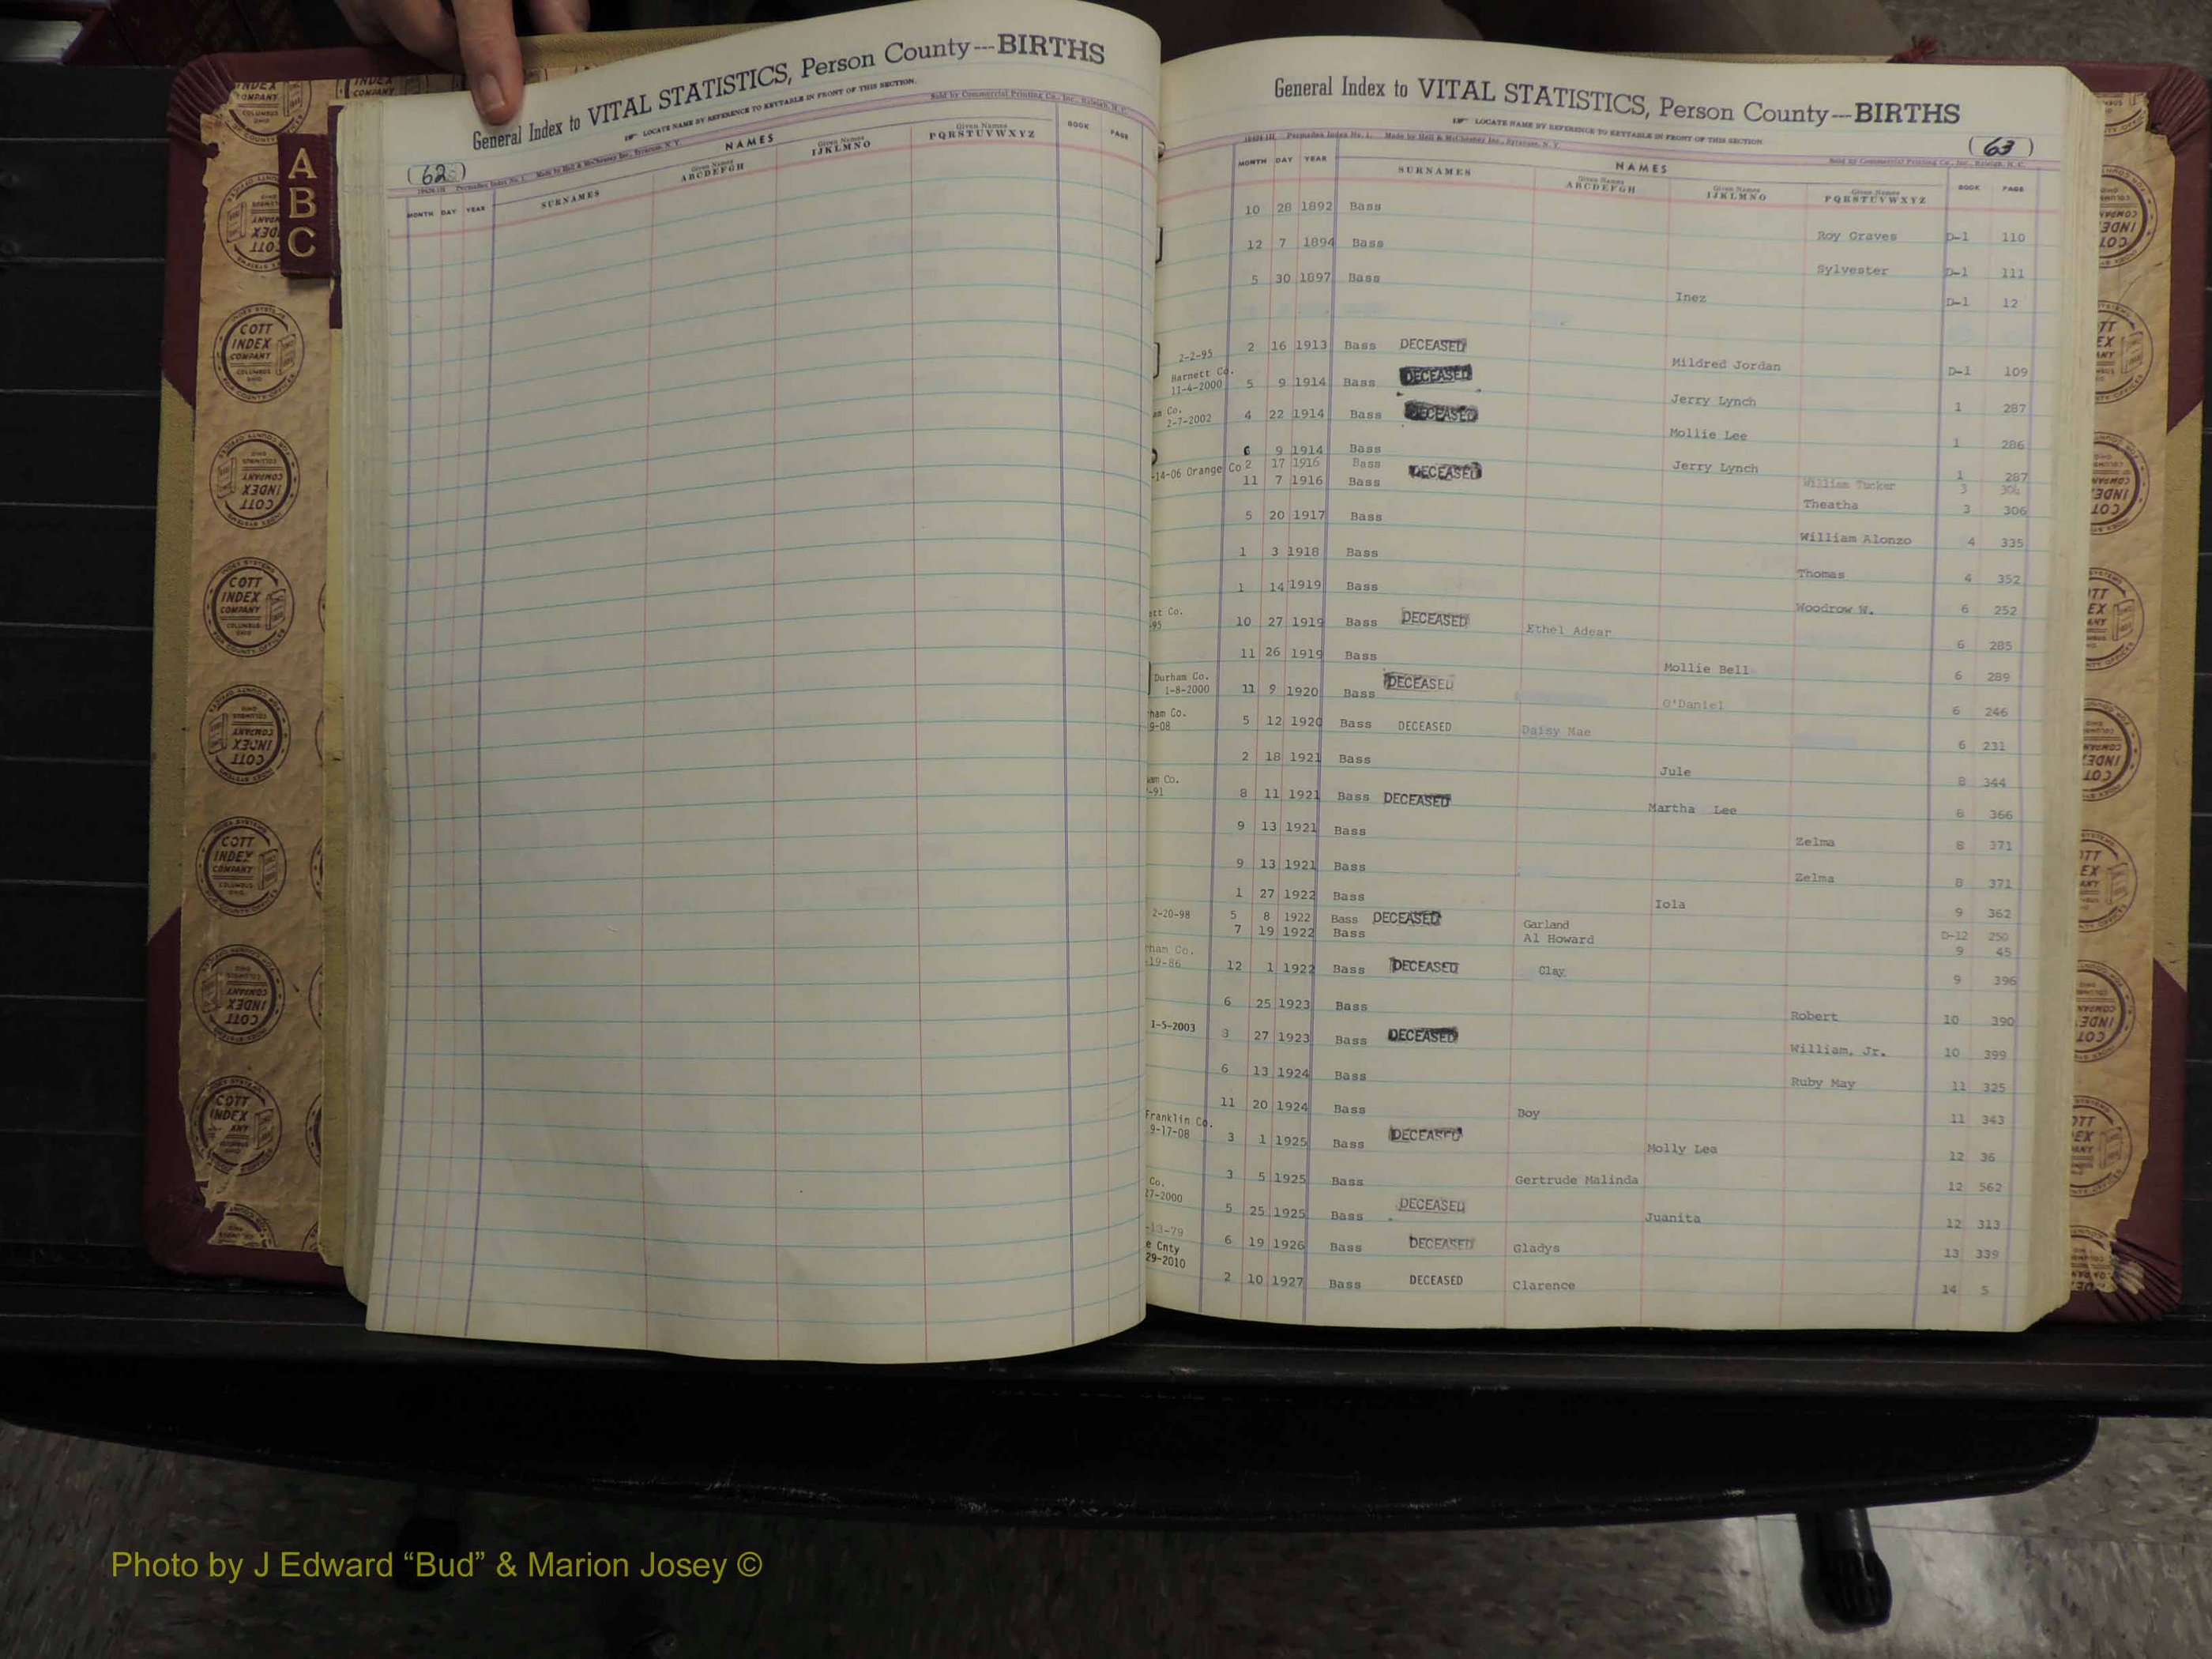 General Index to VITAL STATISTICS, Person County---BIRTHS
LOCATE NAME BY REFERENCE TO KEYTABLE IN FRONT OF THIS SECTION.
Sold by Commercial Printing Co., Inc., Raleigh, N. C.
(62)
Made by Hall & McChesney Inc., Syracuse, N. Y.
NAMES
MONTH DAY YEAR SURNAMES Given Names ABCDEFGH Given Names IJKLMNO Given Names PQRSTUVWXYZ BOOK PAGE
A
B
C
COTT INDEX COMPANY COLUMBUS OHIO
General Index to VITAL STATISTICS, Person County---BIRTHS
LOCATE NAME BY REFERENCE TO KEYTABLE IN FRONT OF THIS SECTION
(63)
Made by Hall & McChesney Inc., Syracuse, N. Y. Sold by Commercial Printing Co., Inc., Raleigh, N. C.
NAMES
MONTH DAY YEAR SURNAMES Given Names ABCDEFGH Given Names IJKLMNO Given Names PQRSTUVWXYZ BOOK PAGE
10 28 1892 Bass Roy Graves D-1 110
12 7 1894 Bass Sylvester D-1 111
5 30 1897 Bass Inez D-1 12
2-2-95 2 16 1913 Bass DECEASED Mildred Jordan D-1 109
Harnett Co.
11-4-2000 5 9 1914 Bass DECEASED Jerry Lynch 1 287
am Co.
2-7-2002 4 22 1914 Bass DECEASED Mollie Lee 1 286
6 9 1914 Bass Jerry Lynch 1 287
-14-06 Orange Co 2 17 1916 Bass DECEASED William Tucker 3 306
11 7 1916 Bass Theatha 3 306
5 20 1917 Bass William Alonzo 4 335
1 3 1918 Bass Thomas 4 352
1 14 1919 Bass Woodrow W. 6 252
ett Co.
-95 10 27 1919 Bass DECEASED Ethel Adear 6 285
11 26 1919 Bass Mollie Bell 6 289
Durham Co.
1-8-2000 11 9 1920 Bass DECEASED O'Daniel 6 246
ham Co.
9-08 5 12 1920 Bass DECEASED Daisy Mae 6 231
2 18 1921 Bass Jule 8 344
am Co.
-91 8 11 1921 Bass DECEASED Martha Lee 8 366
9 13 1921 Bass Zelma 8 371
9 13 1921 Bass Zelma 8 371
1 27 1922 Bass Iola 9 362
2-20-98 5 8 1922 Bass DECEASED Garland D-12 250
7 19 1922 Bass Al Howard 9 45
ham Co.
19-86 12 1 1922 Bass DECEASED Clay 9 396
6 25 1923 Bass Robert 10 390
1-5-2003 3 27 1923 Bass DECEASED William, Jr. 10 399
6 13 1924 Bass Ruby May 11 325
11 20 1924 Bass Boy 11 343
Franklin Co.
9-17-08 3 1 1925 Bass DECEASED Molly Lea 12 36
3 5 1925 Bass Gertrude Malinda 12 562
Co.
27-2000 5 25 1925 Bass DECEASED Juanita 12 313
-13-79 6 19 1926 Bass DECEASED Gladys 13 339
e Cnty
29-2010 2 10 1927 Bass DECEASED Clarence 14 5
Photo by J Edward “Bud” & Marion Josey ©